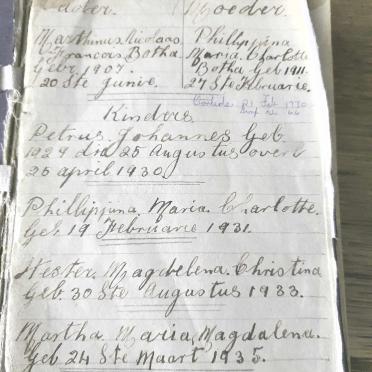 Vader. Moeder.
Marthinus Nicolaas Phillippina
Francois Botha Maria Charlotte
Gebr 1907. Botha Geb 1911.
20 Ste Junie. 27 Ste Februarie.
21 Feb 1930
Kinders
Petrus Johannes Geb.
1929 die 25 Augustus overl
25 april 1930
Phillippina Maria Charlotte.
Geb 19 Februarie 1931.
Hester Magdelena Christina
Geb. 30 Ste Augustus 1933.
Martha Maria Magdalena.
Geb 24 Ste Maart 1935.